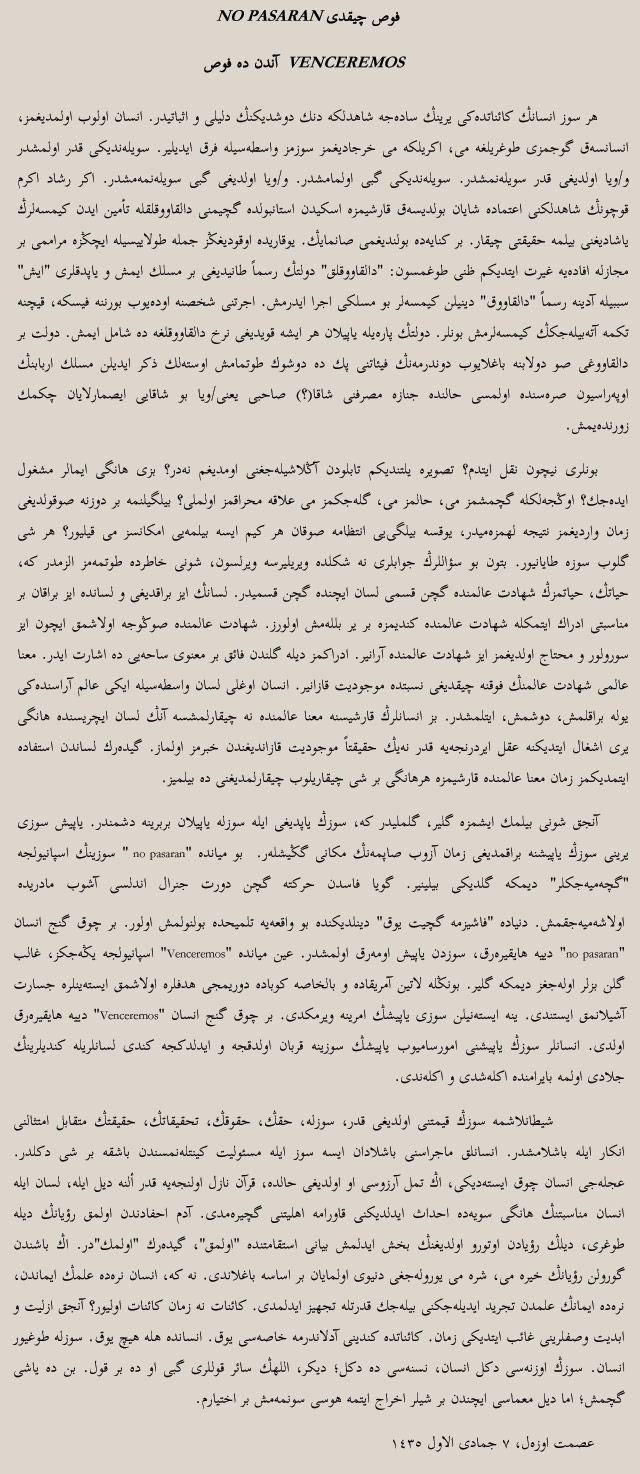 فوص چيقدی NO PASARAN
آندن ده فوص VENCEREMOS
هر سوز انسانڭ كائناتده‌كی يرينڭ ساده‌جه شاهدلكه دنك دوشديكنڭ دليلی و اثباتيدر. انسان اولوب اولمديغمز،
انسانسەق گوجمزی طوغريلغه می، اكريلكه می خرجاديغمز سوزمز واسطه‌سيله فرق ايديلير. سويلەنديكی قدر اولمشدر
و/ويا اولديغی قدر سويلەنمشدر. سويلەنديكی گبی اولمامشدر. و/ويا اولديغی گبی سويلەنمەمشدر. اكر رشاد اكرم
قوچونڭ شاهدلكنی اعتماده شايان بولديسەق قارشيمزه اسكيدن استانبولده گچيمنی دالقاووقلقله تأمين ايدن كيمسەلرڭ
ياشاديغنی بيلمه حقيقتی چيقار. بر كنايه‌ده بولنديغمی صانمايڭ. يوقاريده اوقوديغكڭز جمله طولاييسيله ايچكڭزه مراممی بر
مجازله افاده‌يه غيرت ايتديكم ظنی طوغمسون: "دالقاووقلق" دولتڭ رسماً طانيديغی بر مسلك ايمش و ياپدقلری "ايش"
سببيله آدينه رسماً "دالقاووق" دينيلن كيمسەلر بو مسلكی اجرا ايدرمش. اجرتنی شخصنه اوده‌يوب بورننه فيسكه، قيچنه
تكمه آتەبيلەجكڭ كيمسەلرمش بونلر. دولتڭ پاره‌يله ياپيلان هر ايشه قويديغی نرخ دالقاووقلغه ده شامل ايمش. دولت بر
دالقاووغی صو دولابنه باغلايوب دوندرمەنڭ فيئاتنی پك ده دوشوك طوتمامش اوستەلك ذكر ايديلن مسلك اربابنڭ
اوپەراسيون صره‌سنده اولمسی حالنده جنازه مصرفنی شاقا(؟) صاحبی يعنی/ويا بو شاقايی ايصمارلايان چكمك
زورنده‌يمش.
بونلری نيچون نقل ايتدم؟ تصويره يلتنديكم تابلودن آڭلاشيلەجغنی اومديغم نەدر؟ بزی هانگی ايمالر مشغول
ايده‌جك؟ اوڭجەلكله گچمشمز می، حالمز می، گلەجكمز می علاقه محراقمز اولملی؟ بيلگيلنمه بر دوزنه صوقولديغی
زمان وارديغمز نتيجه لهمزه‌ميدر، يوقسه بيلگی‌يی انتظامه صوقان هر كيم ايسه بيلمەيی امكانسز می قيليور؟ هر شی
گلوب سوزه طايانيور. بتون بو سؤاللرڭ جوابلری نه شكلده ويريليرسه ويرلسون، شونی خاطرده طوتمەمز الزمدر كه،
حياتڭ، حياتمزڭ شهادت عالمنده گچن قسمی لسان ايچنده گچن قسميدر. لسانڭ ايز براقديغی و لسانده ايز براقان بر
مناسبتی ادراك ايتمكله شهادت عالمنده كنديمزه بر ير بللەمش اولورز. شهادت عالمنده صوڭوجه اولاشمق ايچون ايز
سورولور و محتاج اولديغمز ايز شهادت عالمنده آرانير. ادراكمز ديله گلندن فائق بر معنوی ساحەيی ده اشارت ايدر. معنا
عالمی شهادت عالمنڭ فوقنه چيقديغی نسبتده موجوديت قازانير. انسان اوغلی لسان واسطه‌سيله ايكی عالم آراسنده‌كی
يوله براقلمش، دوشمش، ايتلمشدر. بز انسانلرڭ قارشيسنه معنا عالمنده نه چيقارلمشسه آنڭ لسان ايچريسنده هانگی
يری اشغال ايتديكنه عقل ايردرنجەيه قدر نەيڭ حقيقتاً موجوديت قازانديغندن خبرمز اولماز. گيده‌رك لساندن استفاده
ايتمديكمز زمان معنا عالمنده قارشيمزه هرهانگی بر شی چيقاريلوب چيقارلمديغنی ده بيلميز.
آنجق شونی بيلمك ايشمزه گلير، گلمليدر كه، سوزڭ ياپديغی ايله سوزله ياپيلان بربرينه دشمندر. ياپيش سوزی
يرينی سوزڭ ياپيشنه براقمديغی زمان آزوب صاپمەنڭ مكانی گڭيشلەر. بو ميانده "no pasaran" سوزينڭ اسپانيولجه
"گچەميەجكلر" ديمكه گلديكی بيلينير. گويا فاسدن حركته گچن دورت جنرال اندلسی آشوب مادريده
اولاشەميەجقمش. دنياده "فاشيزمه گچيت يوق" دينلديكنده بو واقعەيه تلميحده بولنولمش اولور. بر چوق گنج انسان
"no pasaran" دييه هايقيره‌رق، سوزدن ياپيش اومەرق اولمشدر. عين ميانده "Venceremos" اسپانيولجه يڭەجكز، غالب
گلن بزلر اولەجغز ديمكه گلير. بونڭله لاتين آمريقاده و بالخاصه كوباده دوريمجی هدفلره اولاشمق ايستەينلره جسارت
آشيلانمق ايستندی. ينه ايستەنيلن سوزی ياپيشڭ امرينه ويرمكدی. بر چوق گنج انسان "Venceremos" دييه هايقيره‌رق
اولدی. انسانلر سوزڭ ياپيشنی امورسامیوب ياپيشڭ سوزينه قربان اولدقجه و ايدلدكجه كندی لسانلريله كنديلرينڭ
جلادی اولمه بايرامنده اكلەشدی و اكلەندی.
شيطانلاشمه سوزڭ قيمتنی اولديغی قدر، سوزله، حقڭ، حقوقڭ، تحقيقاتڭ، حقيقتڭ متقابل امتثالنی
انكار ايله باشلامشدر. انسانلق ماجراسنی باشلادان ايسه سوز ايله مسئوليت كينتلەنمسندن باشقه بر شی دكلدر.
عجلەجی انسان چوق ايستەديكی، اڭ تمل آرزوسی او اولديغی حالده، قرآن نازل اولنجەيه قدر ألنه ديل ايله، لسان ايله
انسان مناسبتنڭ هانگی سويه‌ده احداث ايدلديكنی قاورامه اهليتنی گچيره‌مدی. آدم احفادندن اولمق رؤيانڭ ديله
طوغری، ديلڭ رؤيادن اوتورو اولديغنڭ بخش ايدلمش بيانی استقامتنده "اولمق"، گيده‌رك "اولمك"در. اڭ باشندن
گورولن رؤيانڭ خيره می، شره می يورولەجغی دنيوی اولمايان بر اساسه باغلاندی. نه كه، انسان نرده‌ه علمڭ ايماندن،
نرده‌ه ايمانڭ علمدن تجريد ايديلەجكنی بيلەجك قدرتله تجهيز ايدلمدی. كائنات نه زمان كائنات اوليور؟ آنجق ازليت و
ابديت وصفلرينی غائب ايتديكی زمان. كائناتده كندينی آدلاندرمه خاصه‌سی يوق. انسانده هله هيچ يوق. سوزله طوغيور
انسان. سوزڭ اوزنه‌سی دكل انسان، نسنه‌سی ده دكل؛ ديكر، اللهڭ سائر قوللری گبی او ده بر قول. بن ده ياشی
گچمش؛ اما ديل معماسی ايچندن بر شيلر اخراج ايتمه هوسی سونمەمش بر اختيارم.
عصمت اوزەل، ٧ جمادی الاول ١٤٣٥